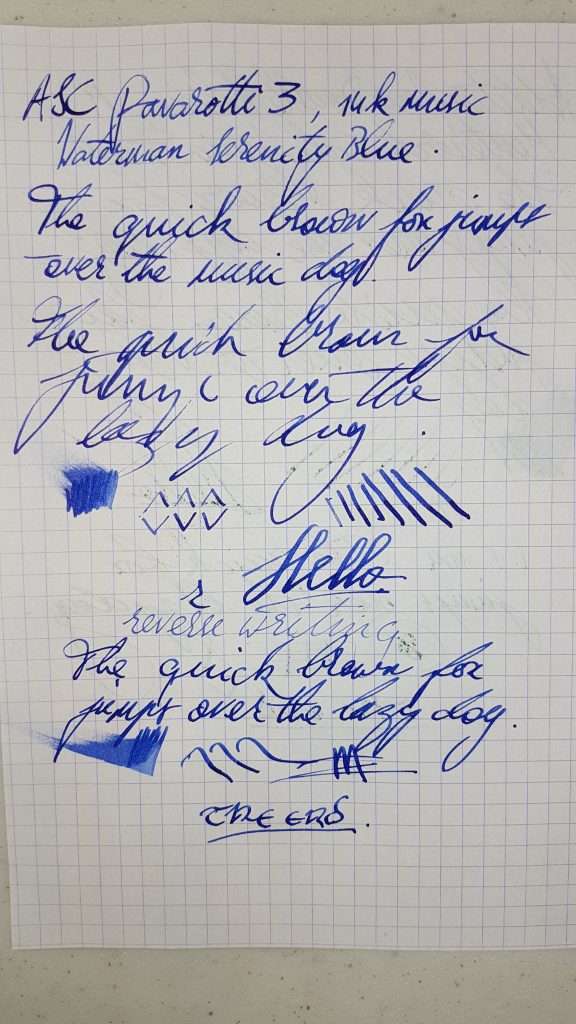 ASC Pavarotti 3, ink music
Waterman Serenity Blue.
The quick brown fox jumps
over the music dog.
The quick brown fox
jumps over the
lazy dog.
Hello.
r
reverse writing
The quick brown fox
jumps over the lazy dog.
CHEERS.